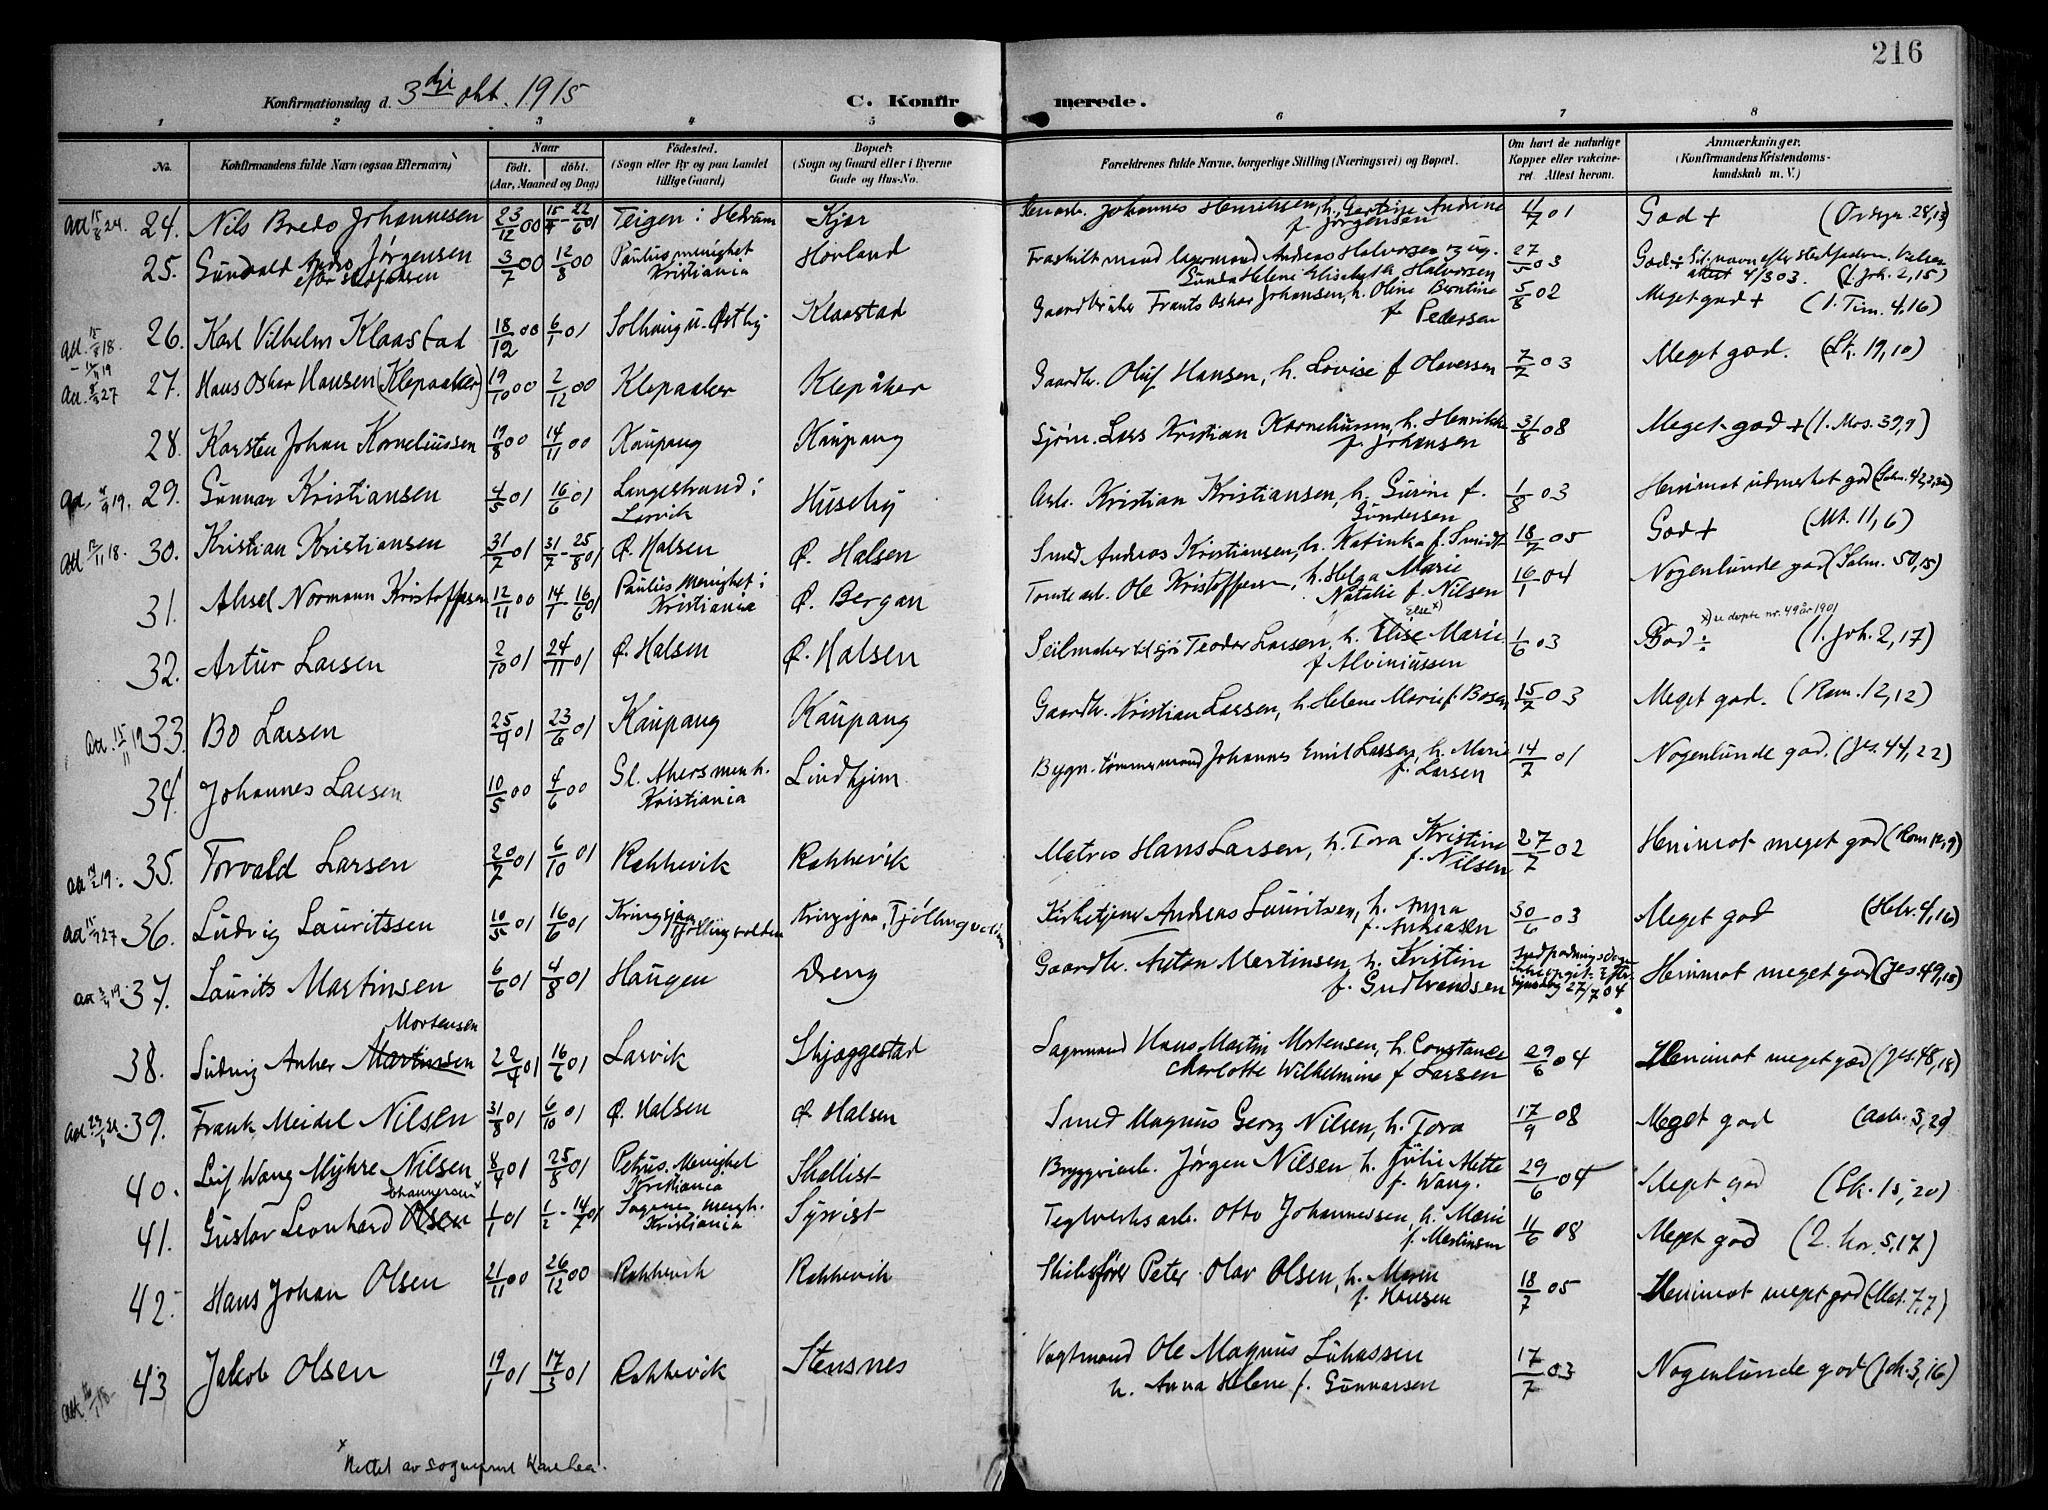 216
Konfirmationsdag d. 3die okt. 1915 C. Konfir merede.
1 2 3 4 5 6 7 8
No. Konfirmandens fulde Navn (ogsaa Efternavn) Naar født. døbt. (Aar, Maaned og Dag) Fødested. (Sogn eller By og paa Landet tillige Gaard) Bopæl: (Sogn og Gaard eller i Byerne Gade og Hus-No. Forældrenes fulde Navne, borgerlige Stilling (Næringsvei) og Bopæl. Om havt de naturlige Kopper eller vakcineret. Attest herom. Anmærkninger. (Konfirmandens Kristendomskundskab m. V.)
24. Nils Bredo Johannesen 23/12 00 15/4 - 22/6 01 Teigen i Hedrum Kjær Johannes Henriksen, h. Gertine Andrine f. Jørgensen 11/7 01 God + (Ordspr. 28,13)
25. Gundald Jørgensen 3/7 00 12/8 00 Paulus menighet Kristiania Hovland Fraskilt mand lagermand Andreas Halvorsen og ug. Gunda Helene Elisabeth Halvorsen 27/5 03 God ÷ attest 4/3 03. (1. Joh. 2,15)
26. Karl Vilhelm Klaastad 18/12 00 6/1 01 Solhaug u. Østby Klaastad Gaardbruker Frants Oskar Johansen, h. Oline Berntine f. Pedersen 5/8 02 Meget god + (1. Tim. 4,16)
27. Hans Oskar Hansen (Klepaaker) 19/10 00 2/12 00 Klepaaker Klepåker Gaardbr. Oluf Hansen, h. Lovise f. Olavessen 7/7 03 Meget god. (Lk. 19,10)
28. Karsten Johan Korneliussen 19/8 00 14/11 00 Kaupang Kaupang Sjøm. Lars Kristian Korneliussen, h. Henrikke f. Johansen 31/8 08 Meget god + (1. Mos. 39,9)
29. Gunnar Kristiansen 4/5 01 16/6 01 Langestrand i Larvik Huseby Arb. Kristian Kristiansen, h. Gurine f. Gundersen 1/8 03 Henimot udmerket god
30. Kristian Kristiansen 31/7 01 31/7 - 25/8 01 Ø. Halsen Ø. Halsen Smed Andreas Kristiansen, h. Katinka f. Smidt 18/7 05 God + (Mt. 11,6)
31. Aksel Normann Kristoffersen 12/11 00 14/1 - 16/6 01 Paulus menighet i Kristiania Ø. Bergan Tomtearb. Ole Kristoffersen, h. Helga Marie Natalie f. Nilsen 16/1 04 Nogenlunde god (Salm. 50,15)
x) se døpte nr. 49 år 1901
32. Artur Larsen 2/10 01 24/11 01 Ø. Halsen Ø. Halsen Seilmaker Teodor Larsen, h. Elise Else x) Marie f. Alviniussen 1/6 03 God ÷ (1. Joh. 2,17)
33. Bo Larsen 25/4 01 23/6 01 Kaupang Kaupang Gaardbr. Kristian Larsen, h. Helene Marie f. Bosen 15/7 03 Meget god. (Rom. 12,12)
34. Johannes Larsen 10/5 00 4/6 00 Gl. Akers menh. Kristiania Lindhjem Bygn. tømmermand Johannes Emil Larsen, h. Marie f. Larsen 14/7 01 Nogenlunde god. (Jes. 44,22)
35. Torvald Larsen 20/7 01 6/10 01 Rakkevik Rakkevik Matros Hans Larsen, h. Tora Kristine f. Nilsen 27/7 02 Henimot meget god
36. Ludvig Lauritssen 10/5 01 16/6 01 Kringsjaa Tjøllingvolden Kringsjaa, Tjøllingvolden Kirketjener Andreas Lauritsen, h. Anna f. Andreasen 30/6 03 Meget god (Hebr. 4,16)
37. Laurits Martinsen 6/6 01 4/8 01 Haugen Dreng Gaardbr. Anton Martinsen, h. Kristine f. Gudbrandsen 27/7 04 Henimot meget god (Jes. 49,15)
38. Ludvig Anker Martinsen Mortensen 22/4 01 16/6 01 Larvik Skjæggestad Sagmand Hans Martin Mortensen, h. Constance Charlotte Wilhelmine f. Larsen 29/6 04 Henimot meget god (Jes. 48,18)
39. Frank Meidel Nilsen 31/8 01 6/10 01 Ø. Halsen Ø. Halsen Smed Magnus Georg Nilsen, h. Tora 17/9 08 Meget god
40. Leif Wang Myhre Nilsen 8/4 01 25/8 01 Petrus Menighet Kristiania Skallist Bryggeriarb. Jørgen Nilsen h. Julie Mette f. Wang. 29/6 04 Meget god (Lk. 15,20)
41. Gustav Leonhard Olsen Johannessen x 1/1 01 1/2 - 14/7 01 Sagene menigh. Kristiania Syrist Teglverksarb. Otto Johannessen, h. Marie f. Martinsen 11/6 08 Meget god (2. Kor. 5,17)
42. Hans Johan Olsen 21/11 00 26/12 00 Rakkevik Rakkevik Skibsfører Peter Olav Olsen, h. Maren f. Hansen 18/7 05 Henimot meget god (Mat. 7,7)
43 Jakob Olsen 19/1 01 17/3 01 Rakkevik Stensnes Vagtmand Ole Magnus Lukassen h. Anna Helene f. Gunnarsen 17/7 03 Nogenlunde god (Joh. 3,16)
x Rettet av sogneprest